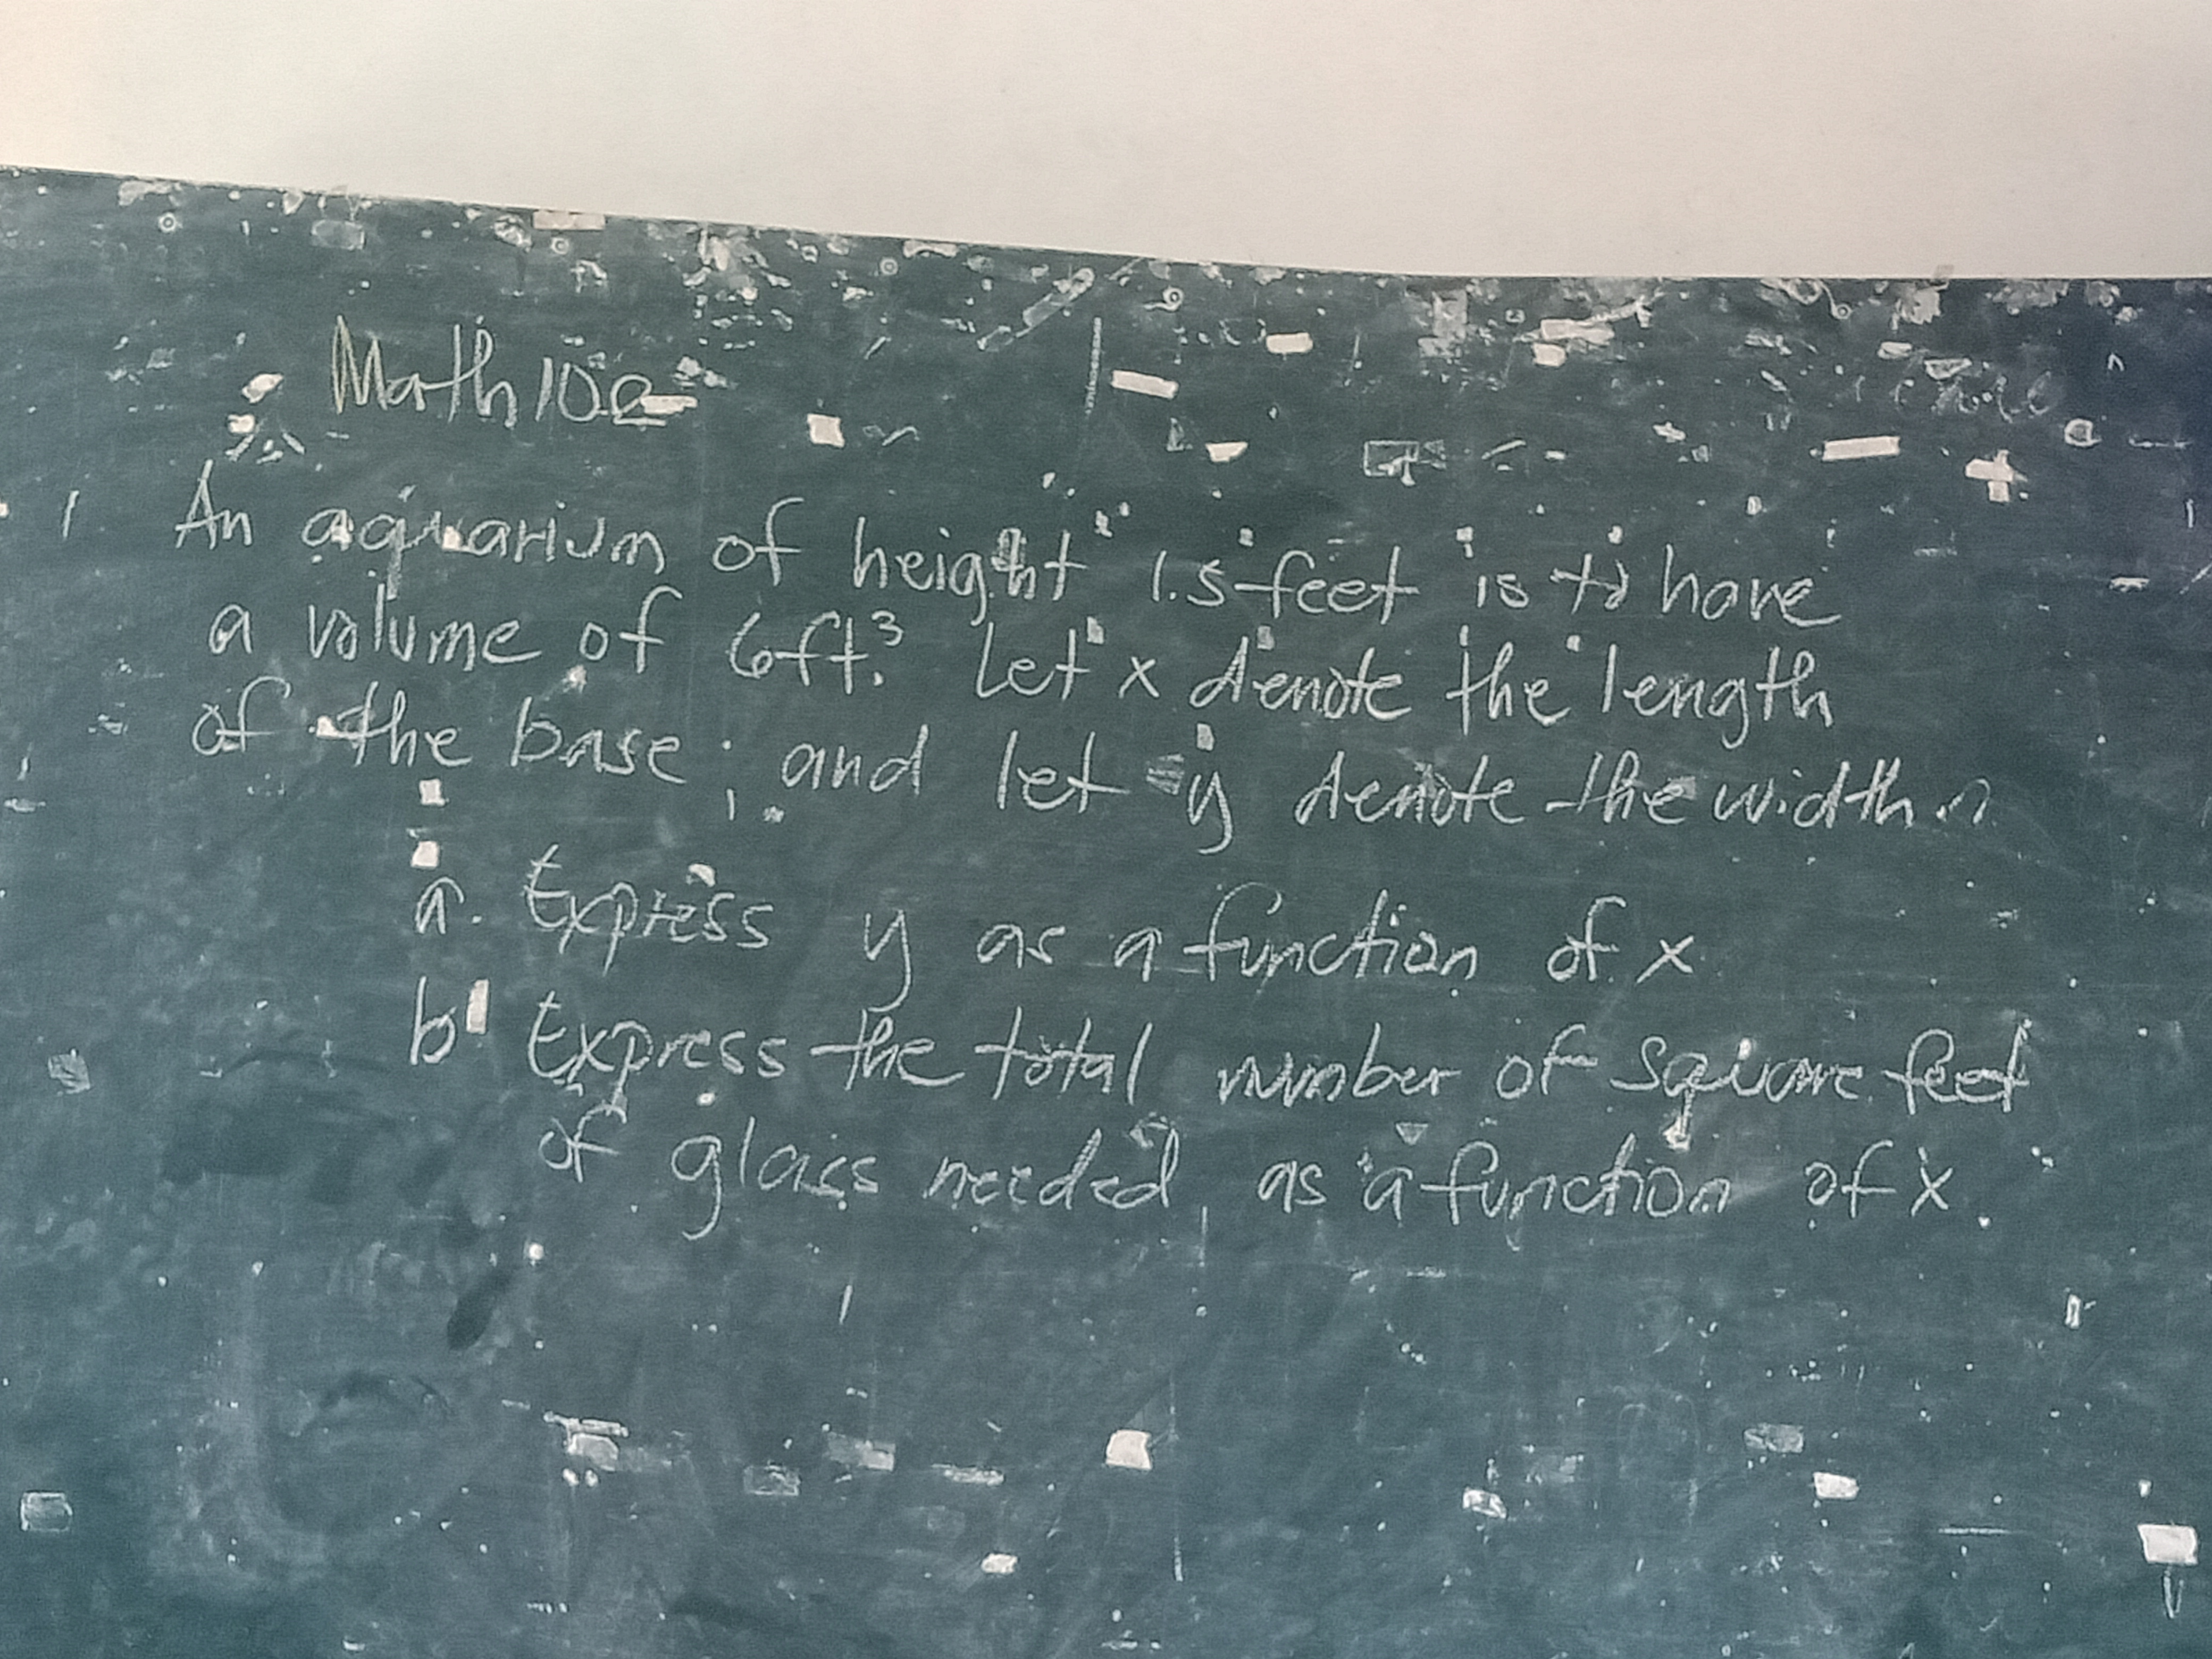 Math 10e
1 An aquarium of height 1.5 feet is to have
a volume of 6ft.³ Let x denote the length
of the base; and let y denote the width.
a. Express y as a function of x
b Express the total number of square feet
of glass needed as a function of x.